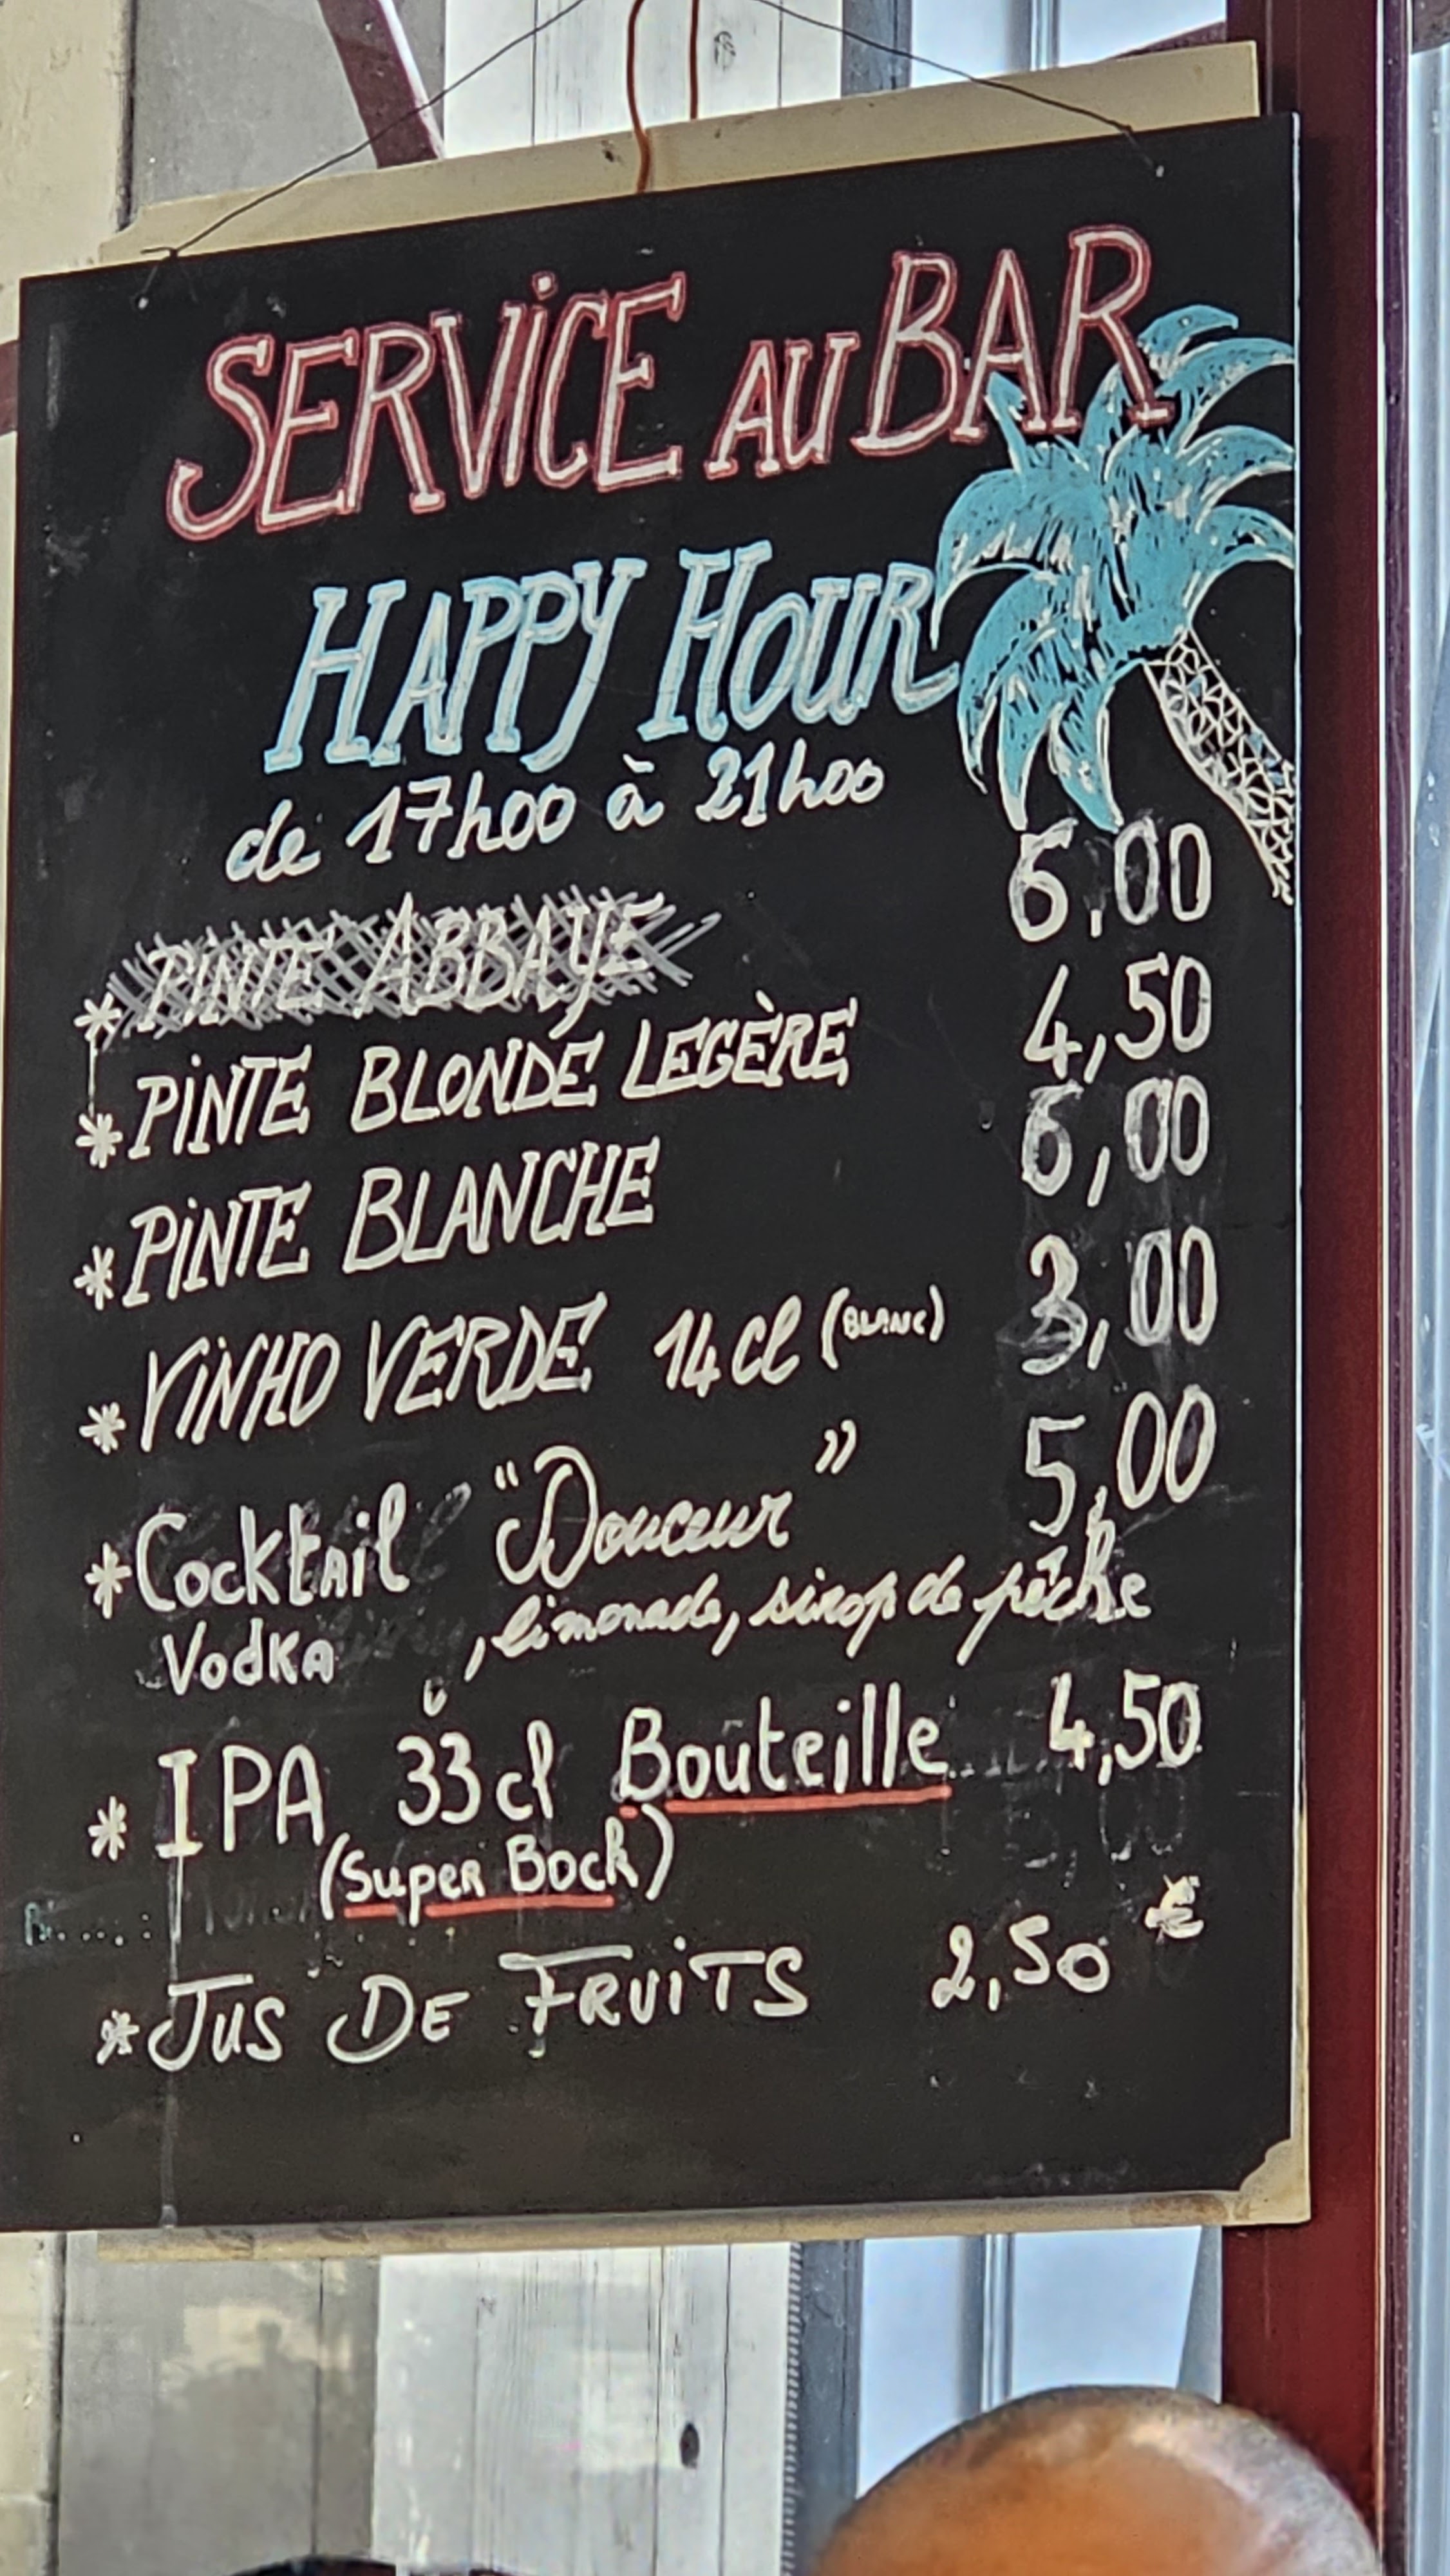 SERVICE AU BAR
HAPPY HOUR
de 17h00 à 21h00
* PINTE ABBAYE 6,00
* PINTE BLONDE LEGÈRE 4,50
* PINTE BLANCHE 6,00
* VINHO VERDE 14cl (BLANC) 3,00
* Cocktail "Douceur" 5,00
Vodka , limonade, sirop de pêche
* IPA 33cl Bouteille 4,50
(Super Bock)
* JUS DE FRUITS 2,50 €